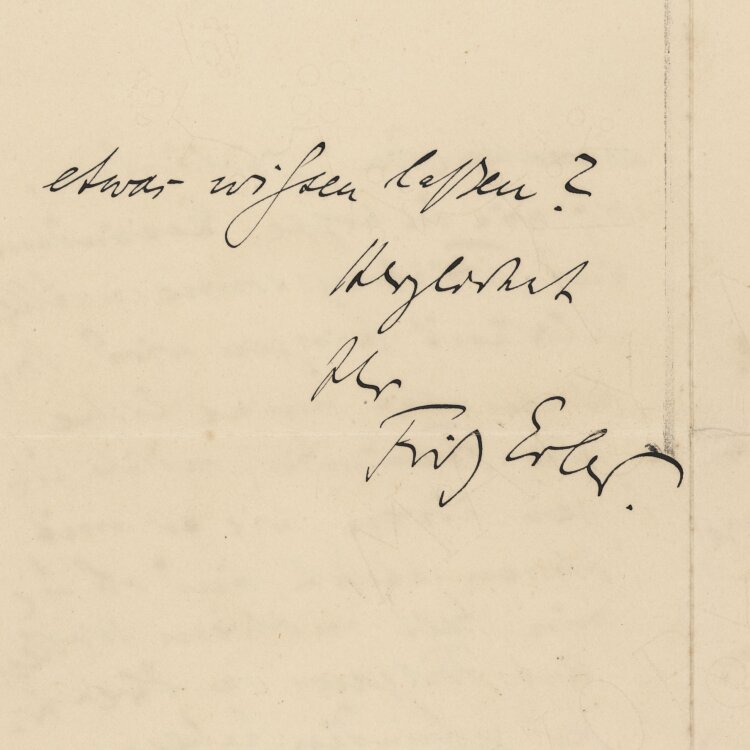 etwas wissen laßen?
Herzlichst
Ihr
Fritz Erler.